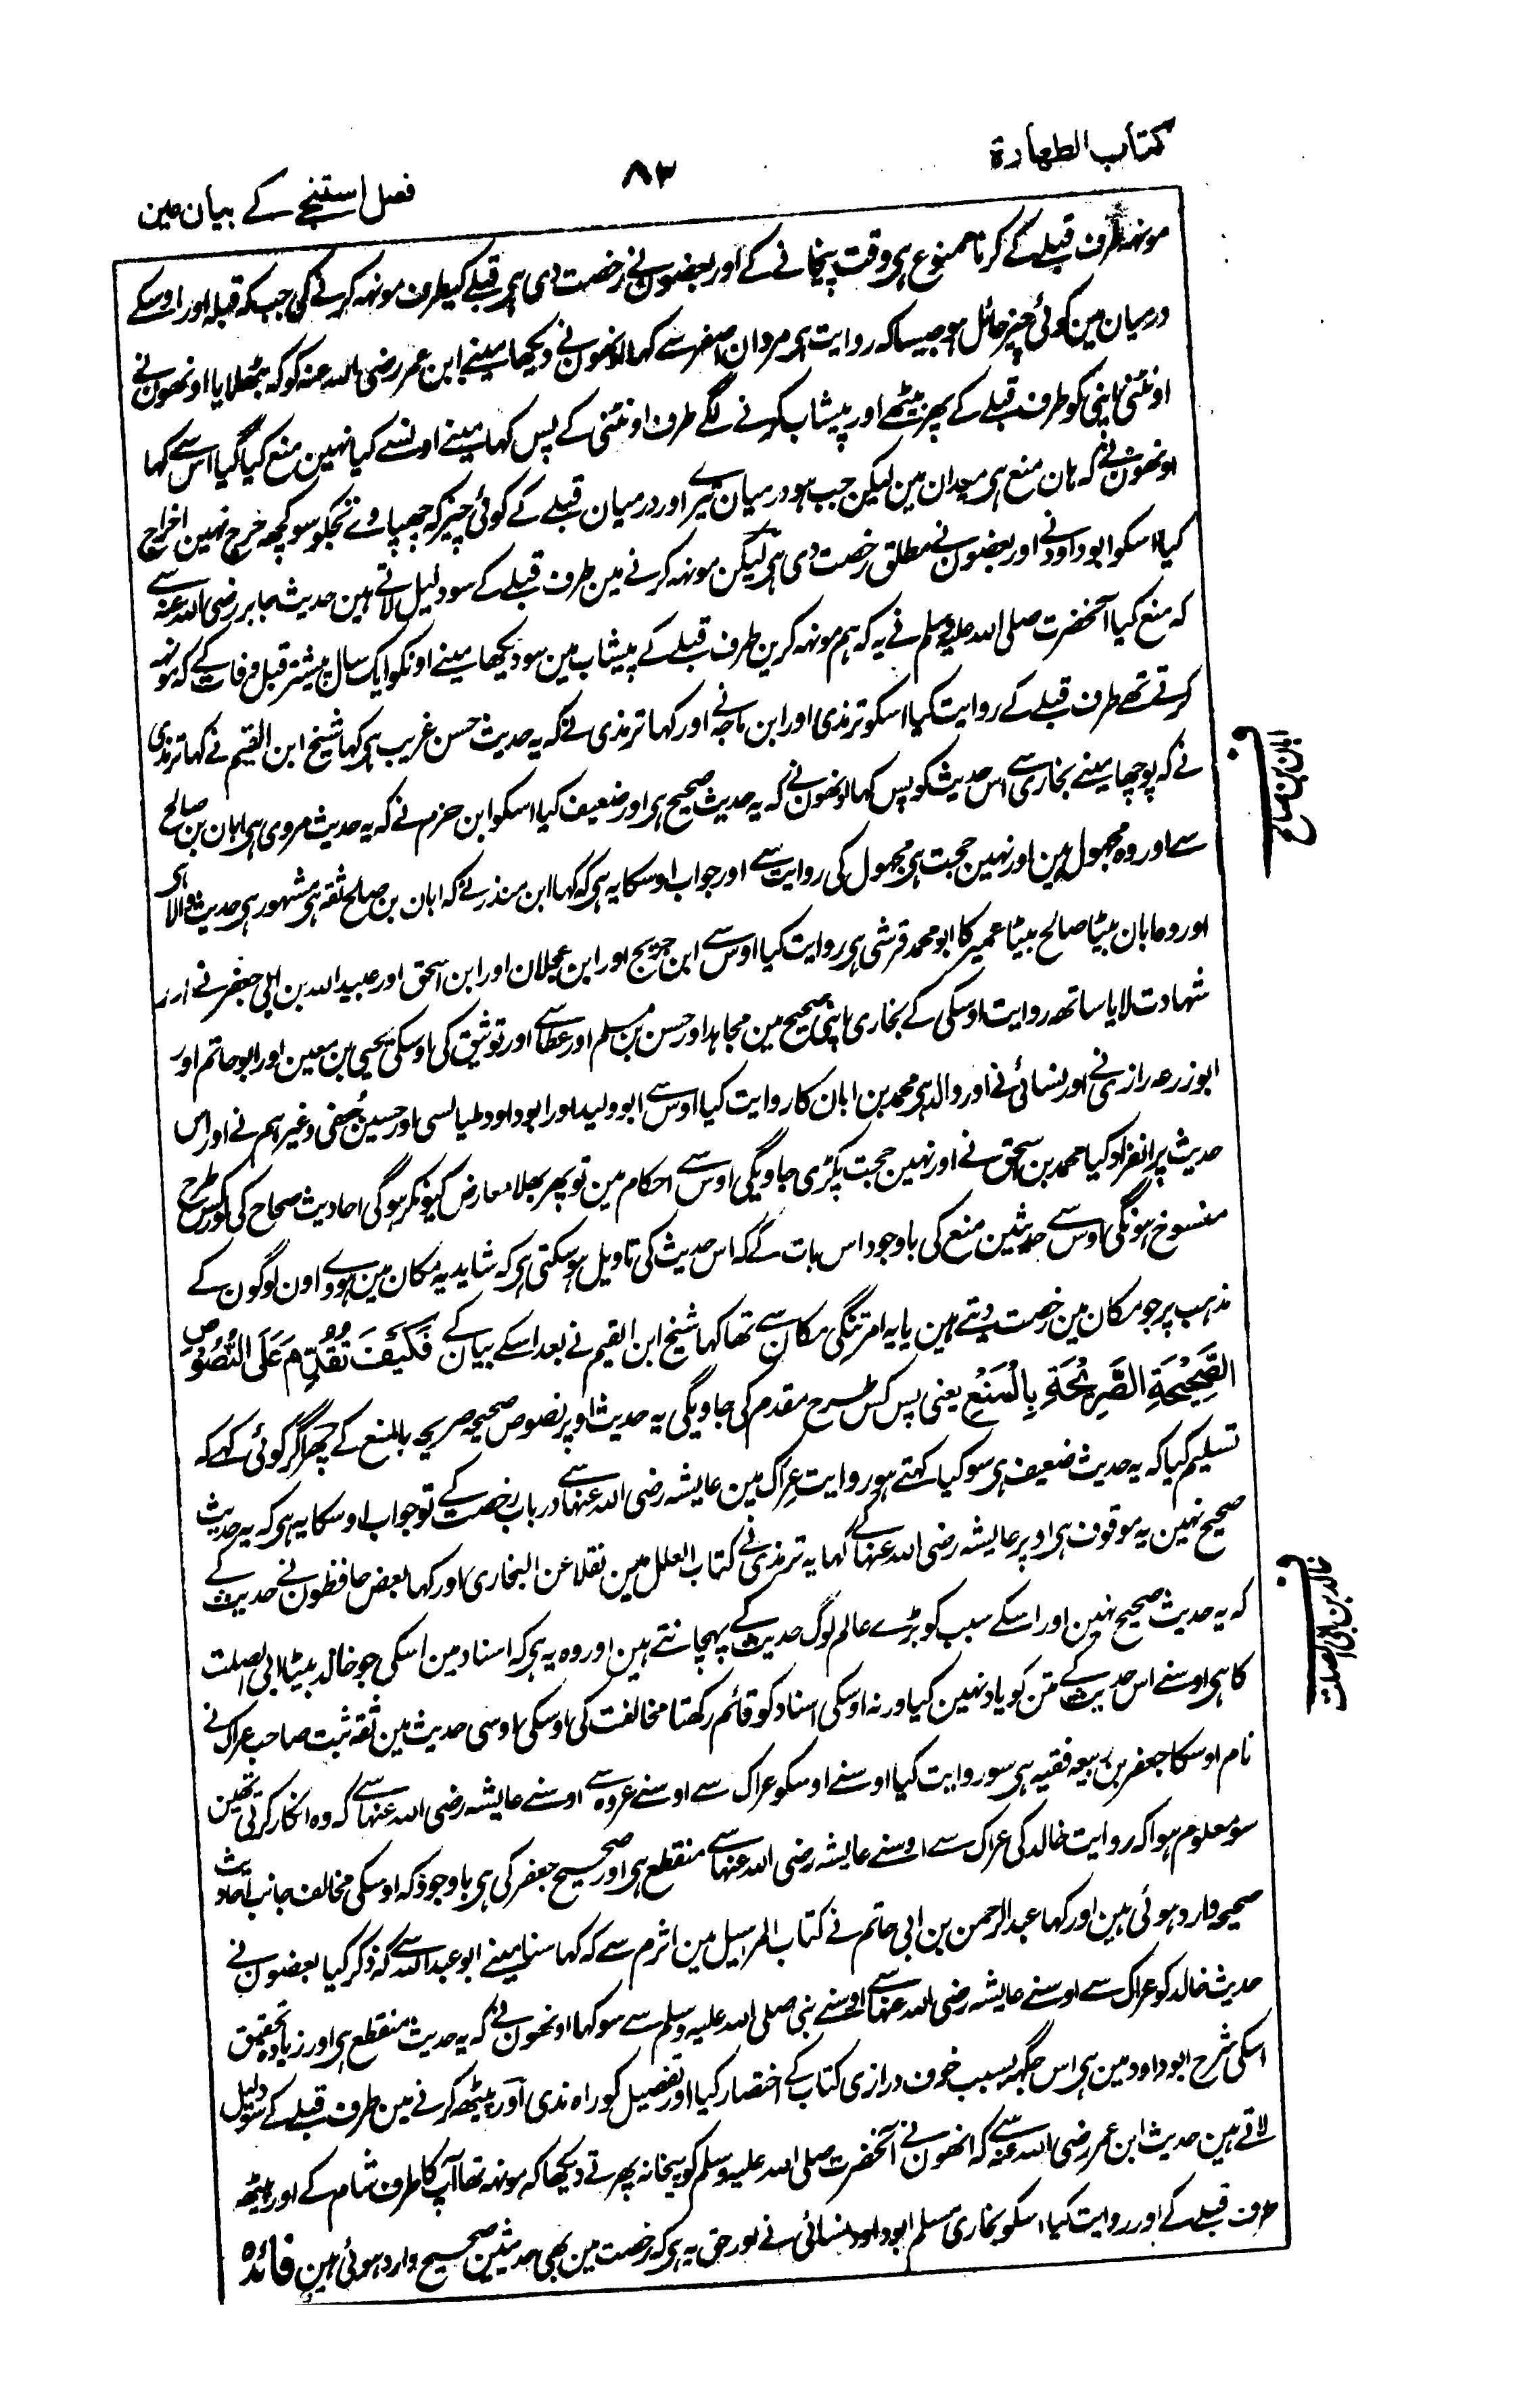 کتاب الطهارة
۸۳
فصل استنجے کے بیان مین
مونہہ طرف قبلے کے کرنا ممنوع ہی وقت پیخانے کے اور بعضون نے رخصت دی ہی قبلے کیطرف مونہہ کرنے کی جب کہ قبلہ اور اوسکے
درمیان مین کوئی چیز حائل ہو جیسا کہ روایت ہی مروان اصفر سے کہا اونھون نے دیکھا مینے ابن عمر رضی اللہ عنہ کو کہ بٹھلایا اونھون نے
اونٹنی اپنی کو طرف قبلے کے پھر بیٹھے اور پیشاب کرنے لگے طرف اونٹنی کے پس کہا مینے اونسے کیا نہین منع کیا گیا اس سے کہا
اونھون نے کہ ہان منع ہی میدان مین لیکن جب ہو درمیان تیرے اور درمیان قبلے کے کوئی چیز کہ چھپاوے تجکو سو کچھ حرج نہین اخراج
کیا اسکو ابو داود نے اور بعضون نے مطلق رخصت دی ہی لیکن مونہہ کرنے مین طرف قبلے کے سو دلیل لاتے ہین حدیث جابر رضی اللہ عنہ سے
کہ منع کیا آنحضرت صلی اللہ علیہ وسلم نے یہ کہ ہم مونہہ کرین طرف قبلے کے پیشاب مین سو دیکھا مینے اونکو ایک سال پیشتر قبل وفات کے کہ مونہہ
کرتے تھے طرف قبلے کے روایت کیا اسکو ترمذی اور ابن ماجہ نے اور کہا ترمذی نے کہ یہ حدیث حسن غریب ہی کہا شیخ ابن القیم نے کہا ترمذی
نے کہ پوچھا مینے بخاری سے اس حدیث کو پس کہا اونھون نے کہ یہ حدیث صحیح ہی اور ضعیف کیا اسکو ابن حزم نے کہ یہ حدیث مروی ہی ابان بن صالح
سے اور وہ مجہول ہین اور نہین حجت ہی مجہول کی روایت سے اور جواب اوسکا یہ ہی کہ کہا ابن منذر نے کہ ابان بن صالح ثقہ ہی مشہور ہی حدیث والا ہی
اور وہ ابان بیٹا صالح بیٹا عمیر کا ابو محمد قرشی ہی روایت کیا اوس سے ابن جریج اور ابن عجلان اور ابن اسحق اور عبید اللہ بن ابی جعفر نے اور
شہادت لایا ساتھ روایت اوسکی کے بخاری اپنی صحیح مین مجاہد اور حسن بن مسلم اور عطا سے اور توثیق کی اوسکی یحیی بن معین اور ابو حاتم اور
ابو زرعہ رازی نے اور نسائی نے اور والد ہی محمد بن ابان کا روایت کیا اوس سے ابو ولید اور ابو داود طیالسی اور حسین جعفی وغیرہم نے اور اس
حدیث پر انفراد کیا محمد بن اسحق نے اور نہین حجت پکڑی جاویگی اوس سے احکام مین تو پھر بھلا معارض کیونکر ہوگی احادیث صحاح کی اور کس طرح
منسوخ ہونگی اوس سے حدیثین منع کی باوجود اس بات کے کہ اس حدیث کی تاویل ہو سکتی ہی کہ شاید یہ مکان مین ہووے اون لوگون کے
مذہب پر جو مکان مین رخصت دیتے ہین یا یہ امر تنگی مکان سے تھا کہا شیخ ابن القیم نے بعد اسکے بیان کے فَكَيْفَ تُقَدَّمُ عَلَى النُّصُوصِ
الصَّحِيْحَةِ الصَّرِيْحَةِ بِالْمَنْعِ یعنی پس کس طرح مقدم کی جاویگی یہ حدیث اوپر نصوص صحیحہ صریحہ بالمنع کے پھر اگر کوئی کہے کہ
تسلیم کیا کہ یہ حدیث ضعیف ہی سو کیا کہتے ہو روایت عراک مین عایشہ رضی اللہ عنہا سے در باب رخصت کے تو جواب اوسکا یہ ہی کہ یہ حدیث
صحیح نہین یہ موقوف ہی اوپر عایشہ رضی اللہ عنہا کے کہا یہ ترمذی نے کتاب العلل مین نقلا عن البخاری اور کہا بعض حافظون نے حدیث کے
کہ یہ حدیث صحیح نہین اور اسکے سبب کو بڑے عالم لوگ حدیث کے پہچانتے ہین اور وہ یہ ہی کہ اسناد مین اسکی جو خالد بیٹا ابی الصلت
کا ہی اوسنے اس حدیث کے متن کو یاد نہین کیا ور نہ اوسکی اسناد کو قائم رکھتا مخالفت کی اوسکی اوسی حدیث مین ثقہ ثبت صاحب عراک نے
نام اوسکا جعفر بن ربیعہ فقیہ ہی سو روایت کیا اوسنے اوسکو عراک سے اوسنے عروہ سے اوسنے عایشہ رضی اللہ عنہا سے کہ وہ انکار کرتی تھین
سو معلوم ہوا کہ روایت خالد کی عراک سے اوسنے عایشہ رضی اللہ عنہا سے منقطع ہی اور صحیح جعفر کی ہی باوجودکہ اوسکی مخالف جانب احادیث
صحیحہ وارد ہوئی ہین اور کہا عبد الرحمن بن ابی حاتم نے کتاب المراسیل مین اثرم سے کہ کہا سنا مینے ابو عبد اللہ سے کہ ذکر کیا بعضون نے
حدیث خالد کو عراک سے اوسنے عایشہ رضی اللہ عنہا سے اوسنے نبی صلی اللہ علیہ وسلم سے سو کہا اونھون نے کہ یہ حدیث منقطع ہی اور زیادہ تحقیق
اسکی شرح ابو داود مین ہی اس جگہہ بسبب خوف درازی کتاب کے اختصار کیا اور تفصیل کو راہ ندی اور پیٹھ کرنے مین طرف قبلے کے سو دلیل
لاتے ہین حدیث ابن عمر رضی اللہ عنہ سے کہ انھون نے آنحضرت صلی اللہ علیہ وسلم کو پیخانہ پھرتے دیکھا کہ مونہہ تھا آپ کا طرف شام کے اور پیٹھ
طرف قبلے کے اور روایت کیا اسکو بخاری مسلم ابو داود نسائی نے اور حق یہ ہی کہ رخصت مین بھی حدیثین صحیح وارد ہوئی ہین فائدہ
ابان بن صالح
خالد بن ابی الصلت